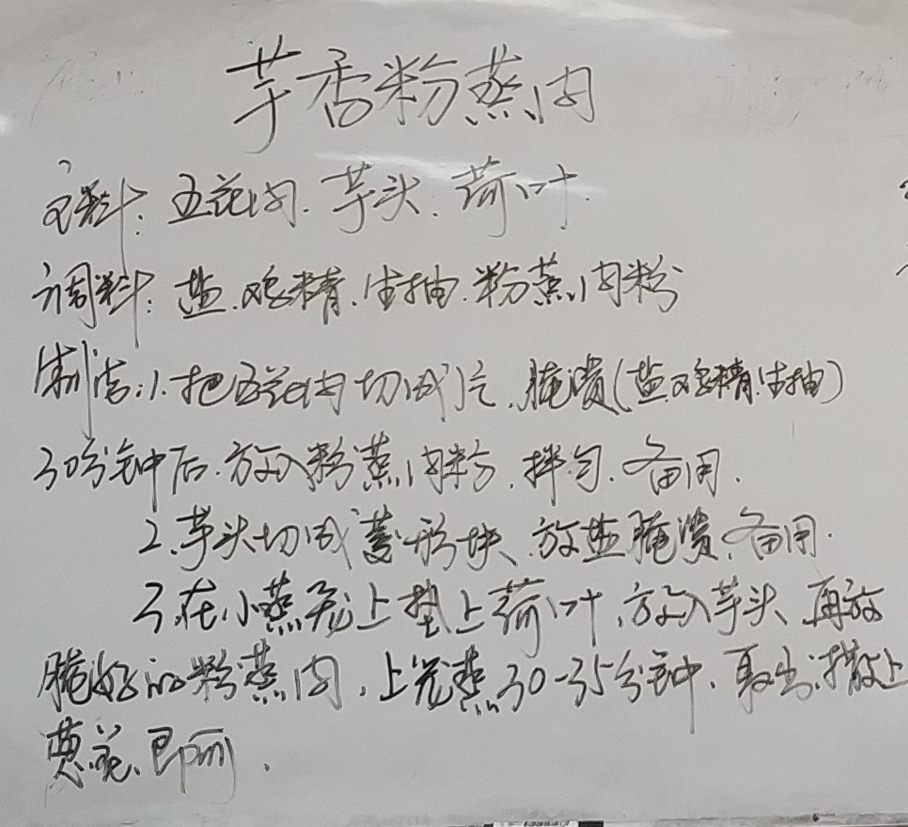 芋香粉蒸肉
主料：五花肉、芋头、荷叶.
调料：盐、鸡精、生抽、粉蒸肉粉
制法：1、把五花肉切成片、腌渍（盐、鸡精、生抽）
30分钟后、放入粉蒸肉粉、拌匀、备用.
2、芋头切成菱形块、放盐腌渍、备用.
3、在小蒸笼上垫上荷叶、放入芋头、再放
腌好的粉蒸肉，上笼蒸30-35分钟、取出、撒上
葱花、即可.